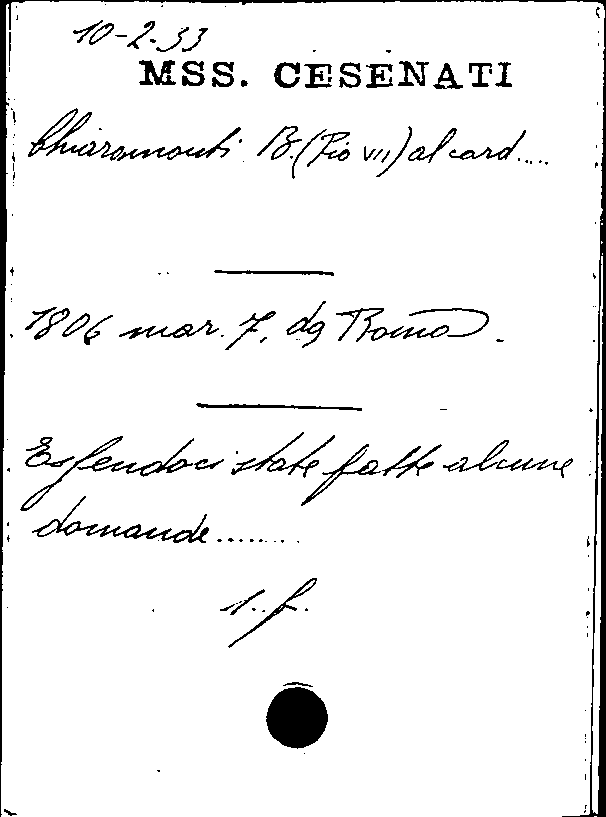 10-2-33
MSS. CESENATI
Chiaramonti B. (Pio VII) al card....
1806 mar. 7, da Roma.
Essendoci state fatte alcune
domande........
1. f.